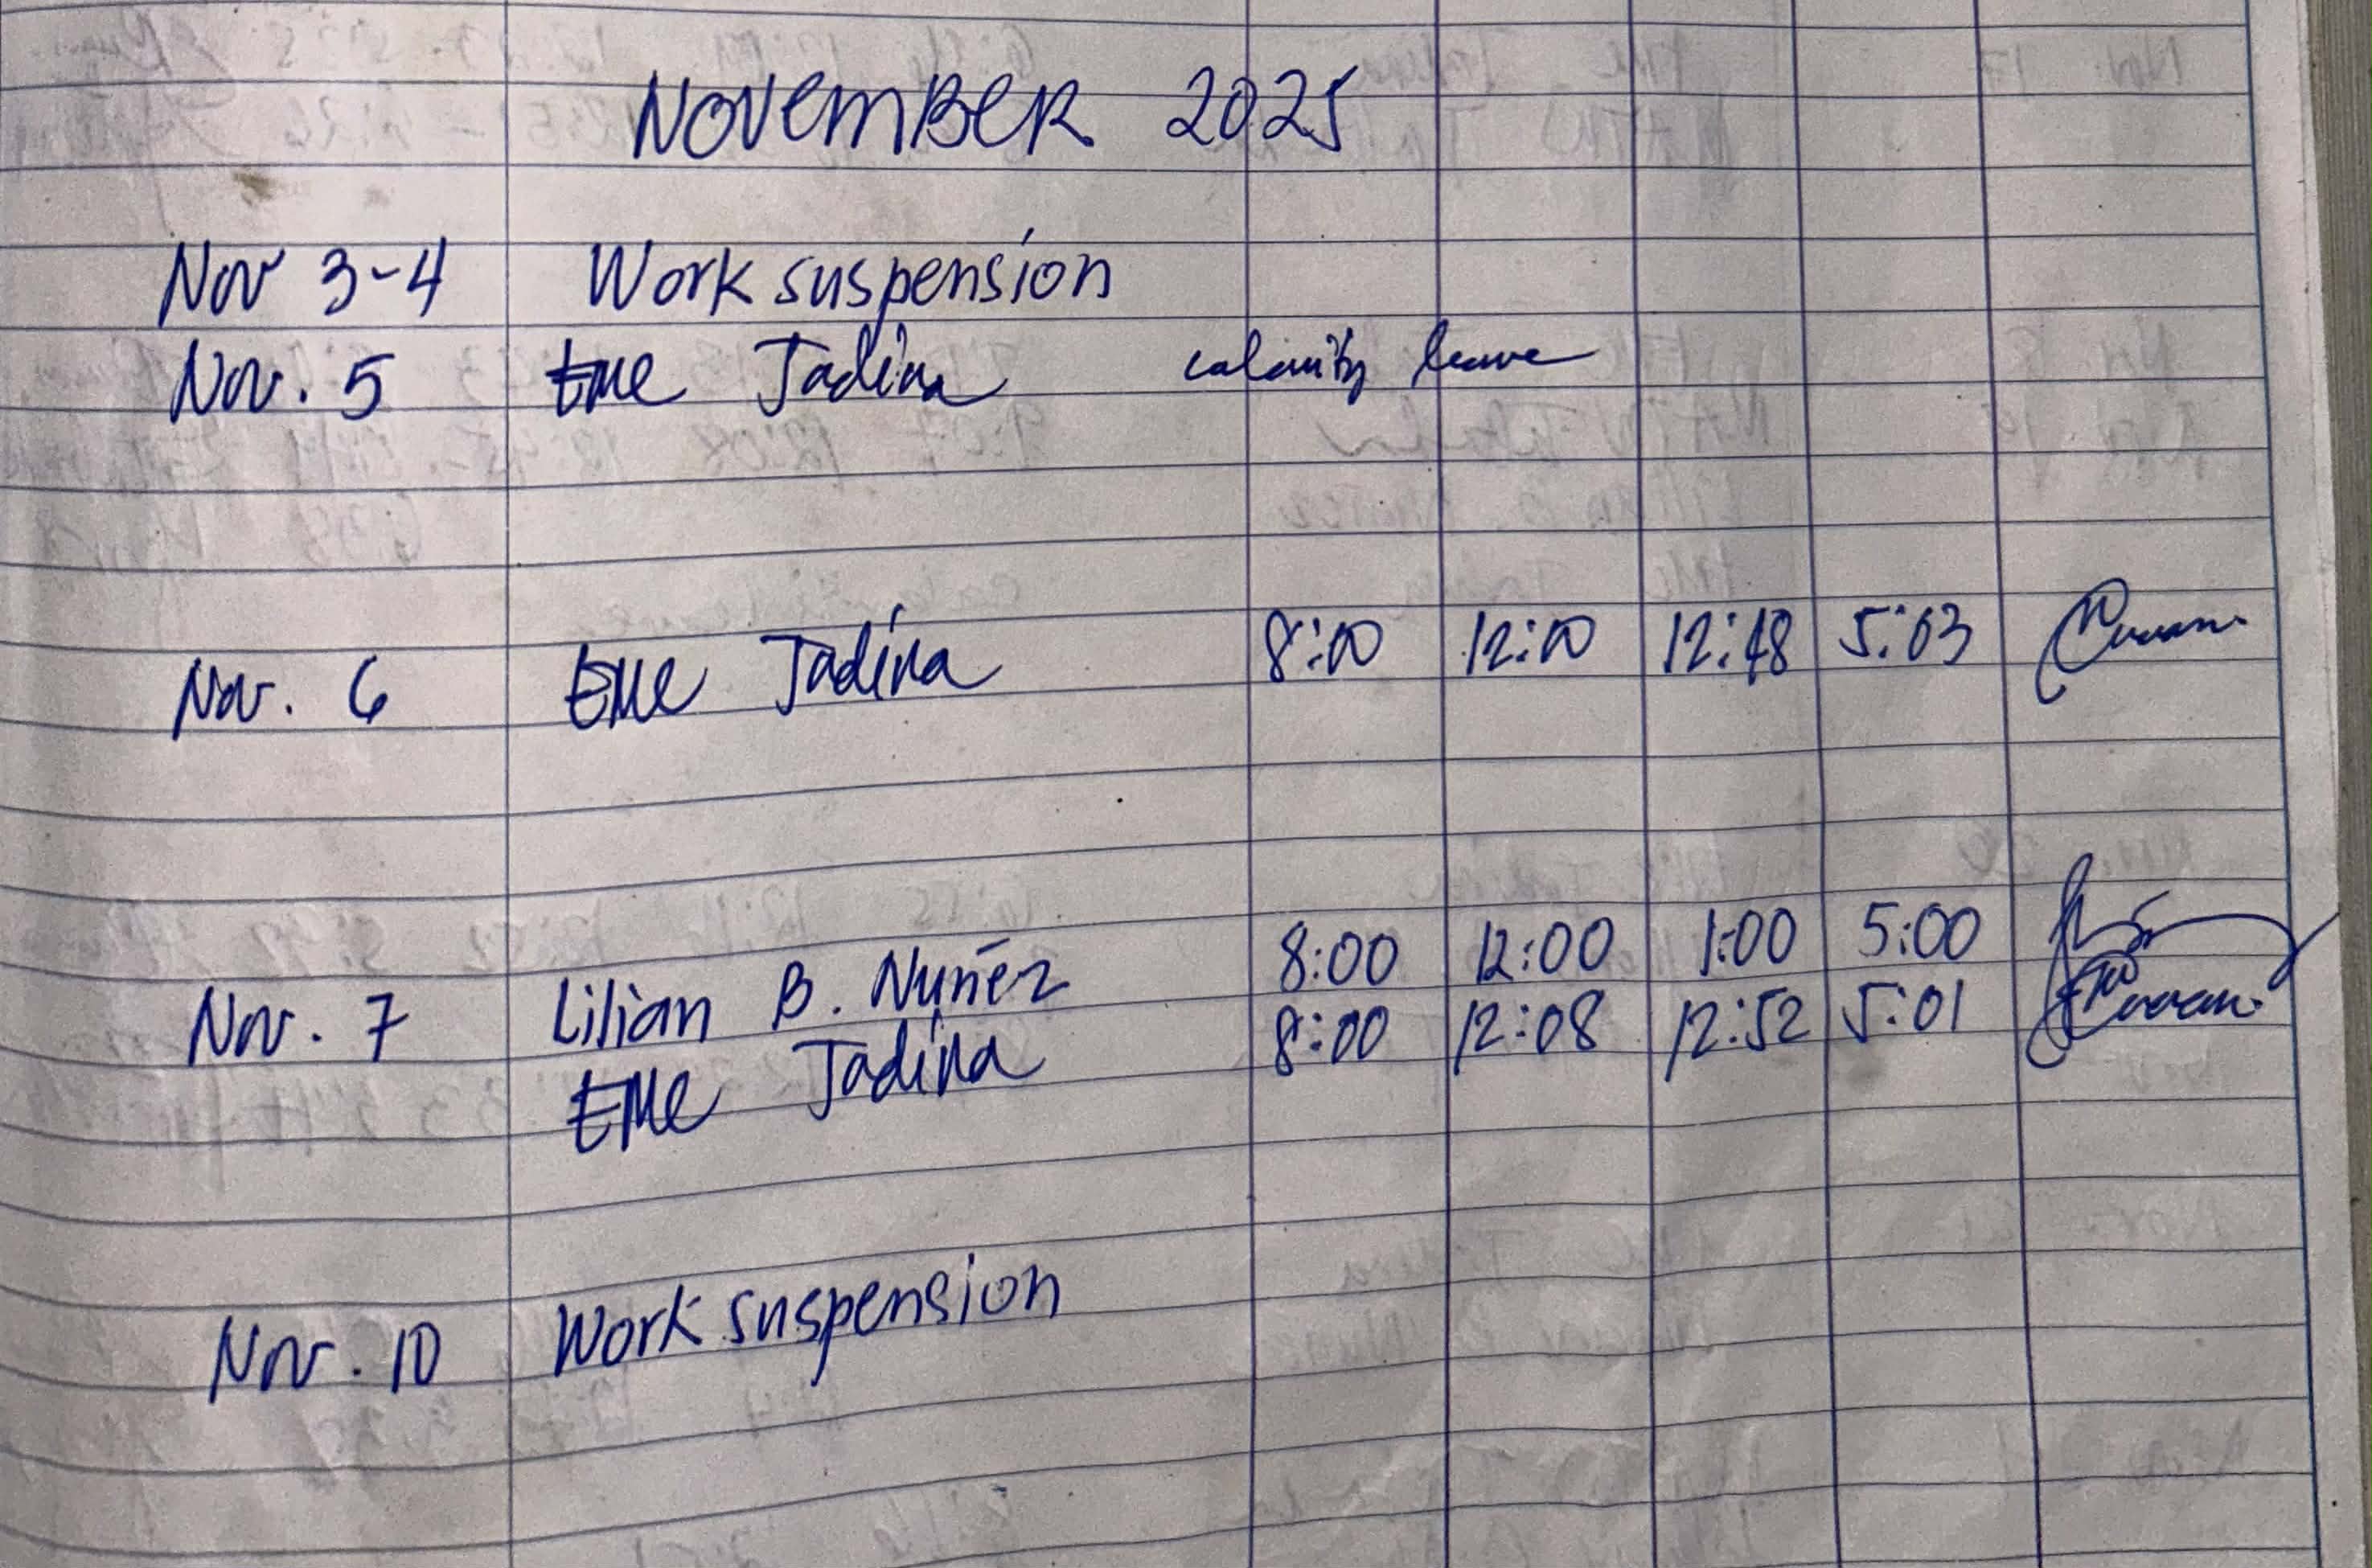 NOVEMBER 2025
Nov 3-4 Work suspension
Nov. 5 EMe Jadina calamity leave
Nov. 6 EMe Jadina 8:00 12:00 12:48 5:03
Nov. 7 Lilian B. Nuñez 8:00 12:00 1:00 5:00
EMe Jadina 8:00 12:08 12:52 5:01
Nov. 10 Work suspension